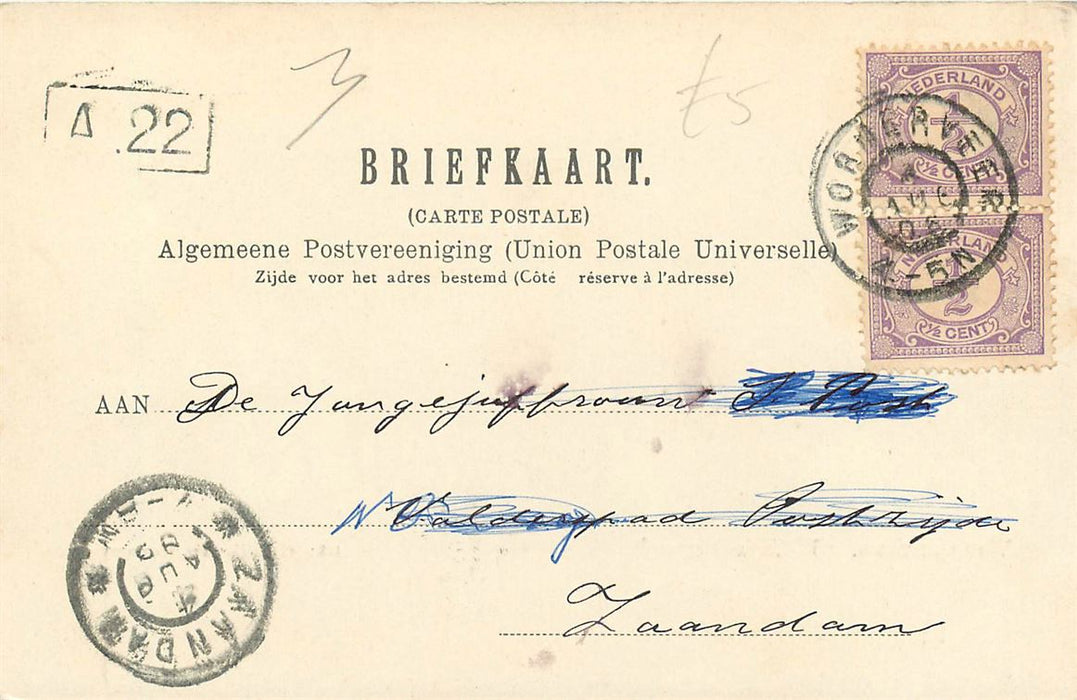 A 22
3
£5
BRIEFKAART.
(CARTE POSTALE)
Algemeene Postvereeniging (Union Postale Universelle)
Zijde voor het adres bestemd (Côté réserve à l'adresse)
NEDERLAND
½
½ CENT
WORMERVEER
4 AUG
4-5N
NEDERLAND
½
½ CENT
AAN De Jongejuffrouw P Post
Oostzijde
Zaandam
ZAANDAM
4 AUG